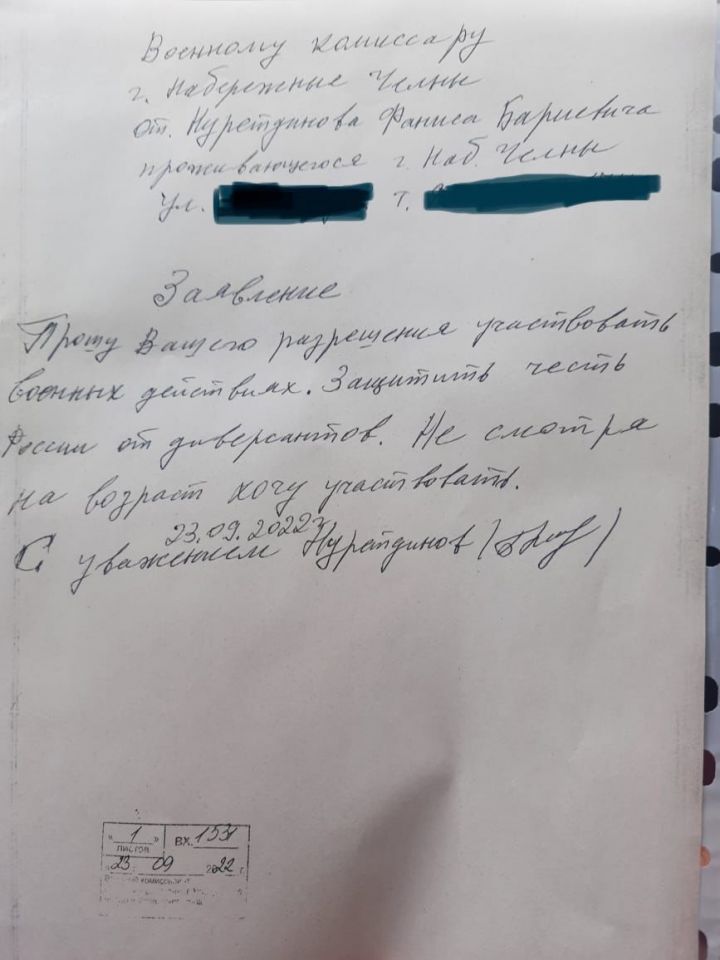 Военному комиссару
г. Набережные Челны
от. Нуретдинова Фаниса Бариевича
проживающегося г. Наб. Челны
ул. т.
Заявление
Прошу Вашего разрешения участвовать
военных действиях. Защитить честь
России от диверсантов. Не смотря
на возраст хочу участвовать.
23.09.2022г
С уважением Нуретдинов ( )
"1" ВХ. 1531
ЛИСТОВ
"23" 09 2022 г.